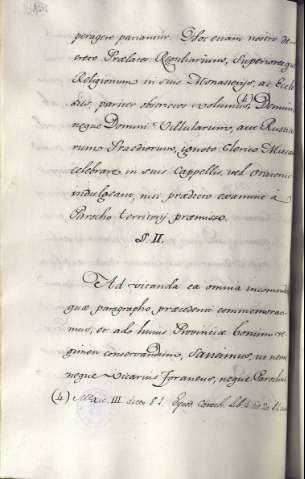 peragere patiantur. Hos etiam nostro de-
creto Praelatos Regulares, Superioresque
Religionum in suis Monasterijs, ac Eccle-
sijs, pariter obstrictos volumus. (4) Demum
neque Domini Villularum, aut Rustico-
rum Praediorum, ignoto Clerico Missam
celebrare in suis Cappellis, vel Oratorijs
indulgeant, nisi praedicto examine à
Parocho territorij praemisso.
§ II.
Ad vitanda ea omnia incommoda
quae paragrapho praecedenti commemora-
mus, et ad huius Provinciae bonum re-
gimen conservandum, Sancimus, ut nemo
neque Vicarius Foraneus, neque Parochus
(4) Mexic. III.